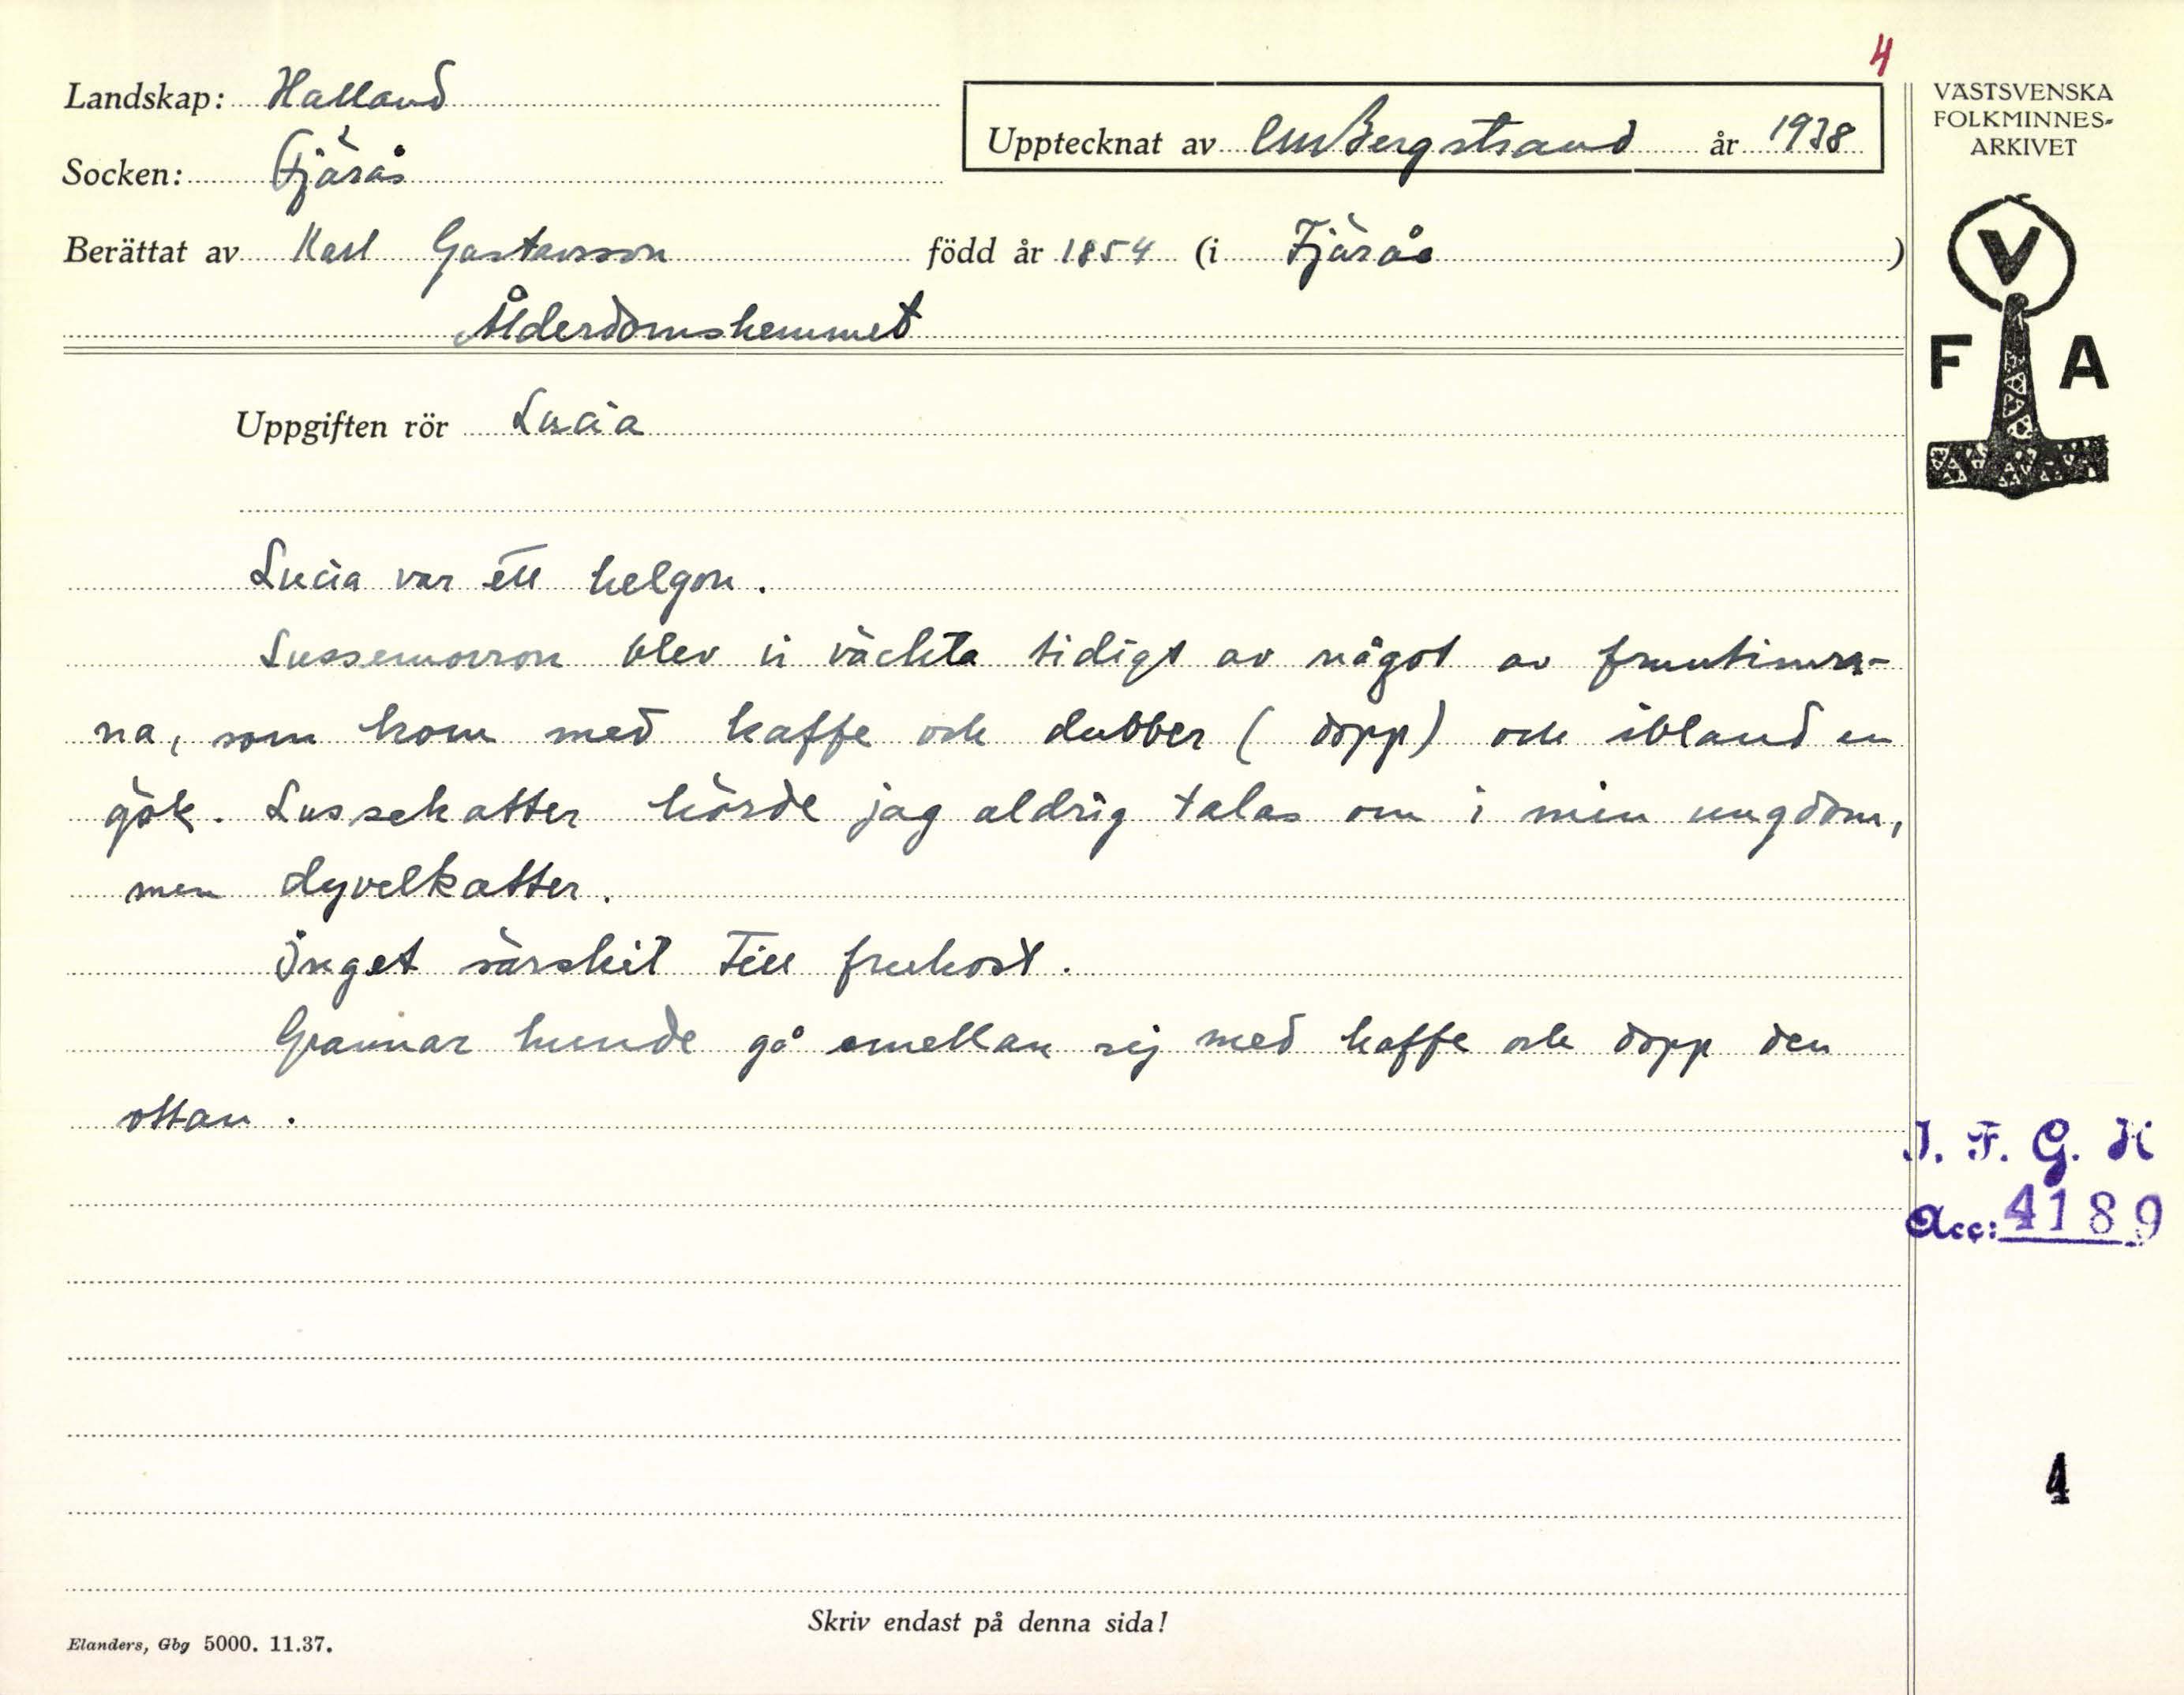 4
Landskap: Halland
Upptecknat av CM Bergstrand år 1938
VÄSTSVENSKA
FOLKMINNES-
ARKIVET
Socken: Fjärås
Berättat av Karl Gustavsson född år 1854 (i Fjärås )
Ålderdomshemmet
V
F A
Uppgiften rör Lucia
Lucia var ett helgon.
Lussemorron blev vi väckta tidigt av något av fruntimra-
na, som kom med kaffe och dubber (dopp) och ibland en
gök. Lussekatter hörde jag aldrig talas om i min ungdom,
men dyvelkatter.
Inget särskilt till frukost.
Grannar kunde gå emellan sig med kaffe och dopp den
ottan.
I. F. G. H
Acc: 4189
4
Skriv endast på denna sida!
Elanders, Gbg 5000. 11.37.